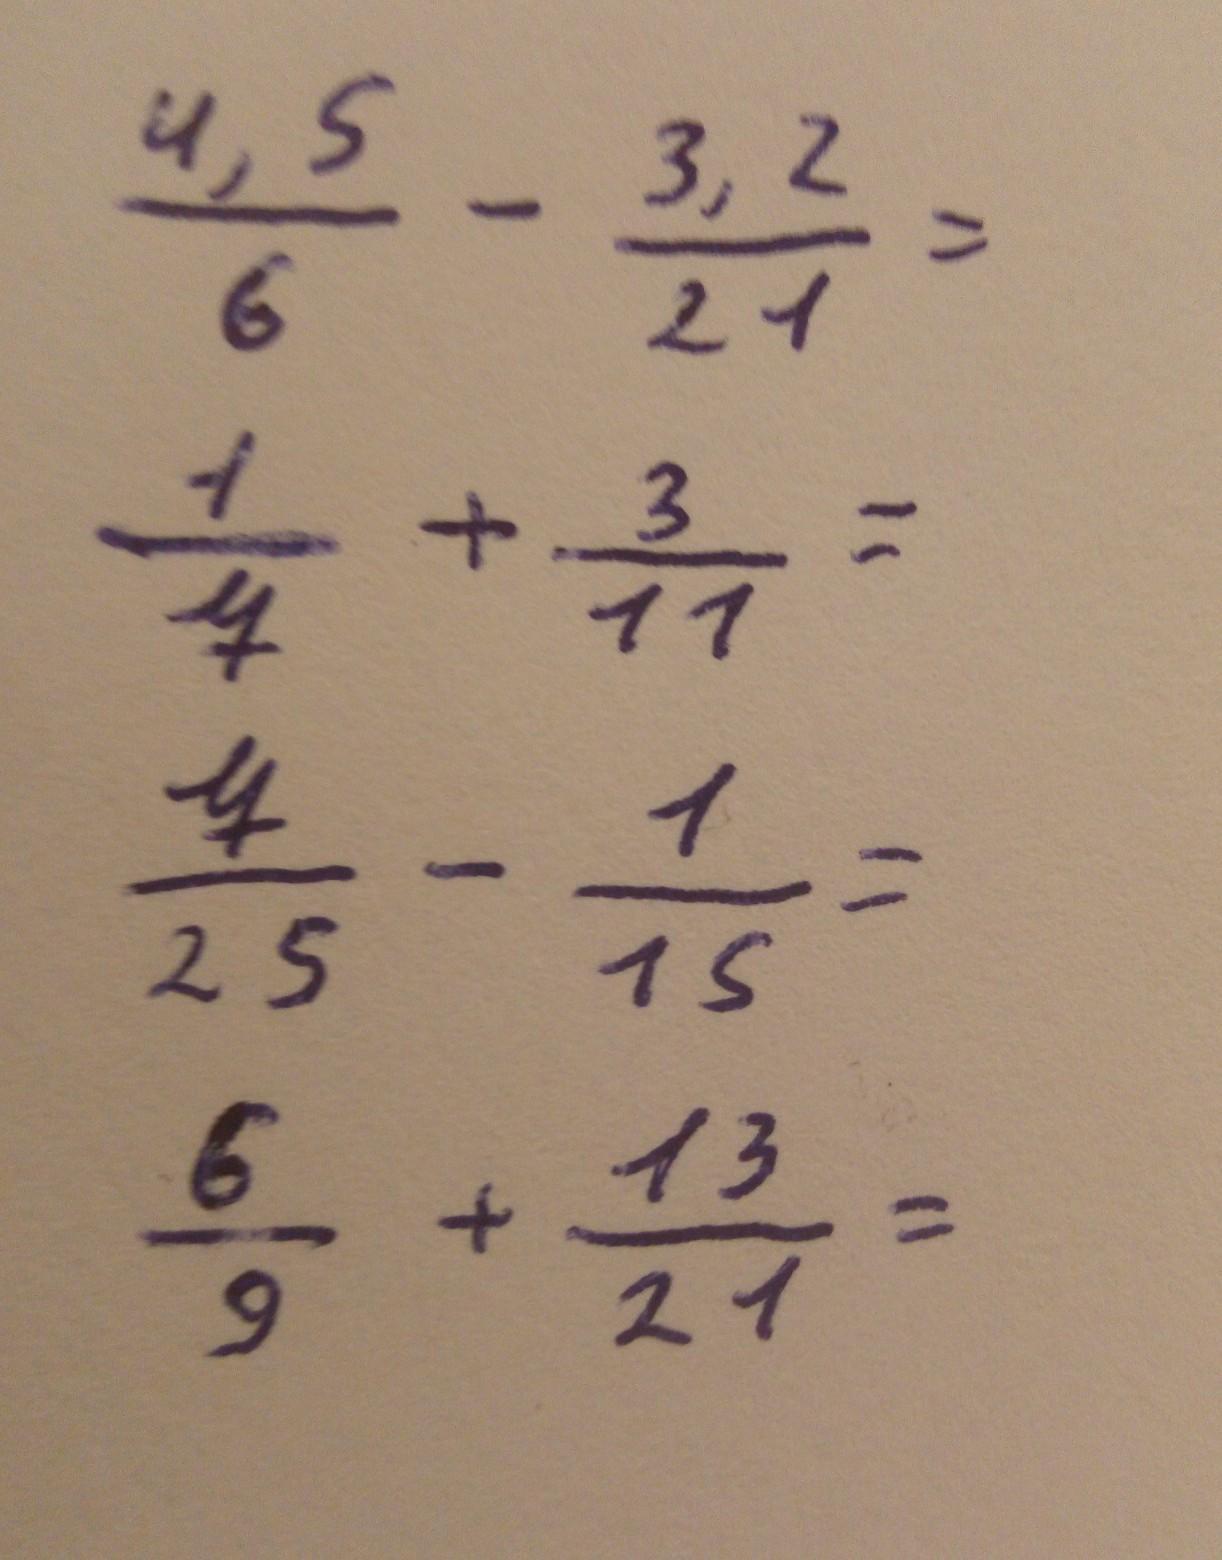 4,5/6 - 3,2/21 =
1/7 + 3/11 =
7/25 - 1/15 =
6/9 + 13/21 =